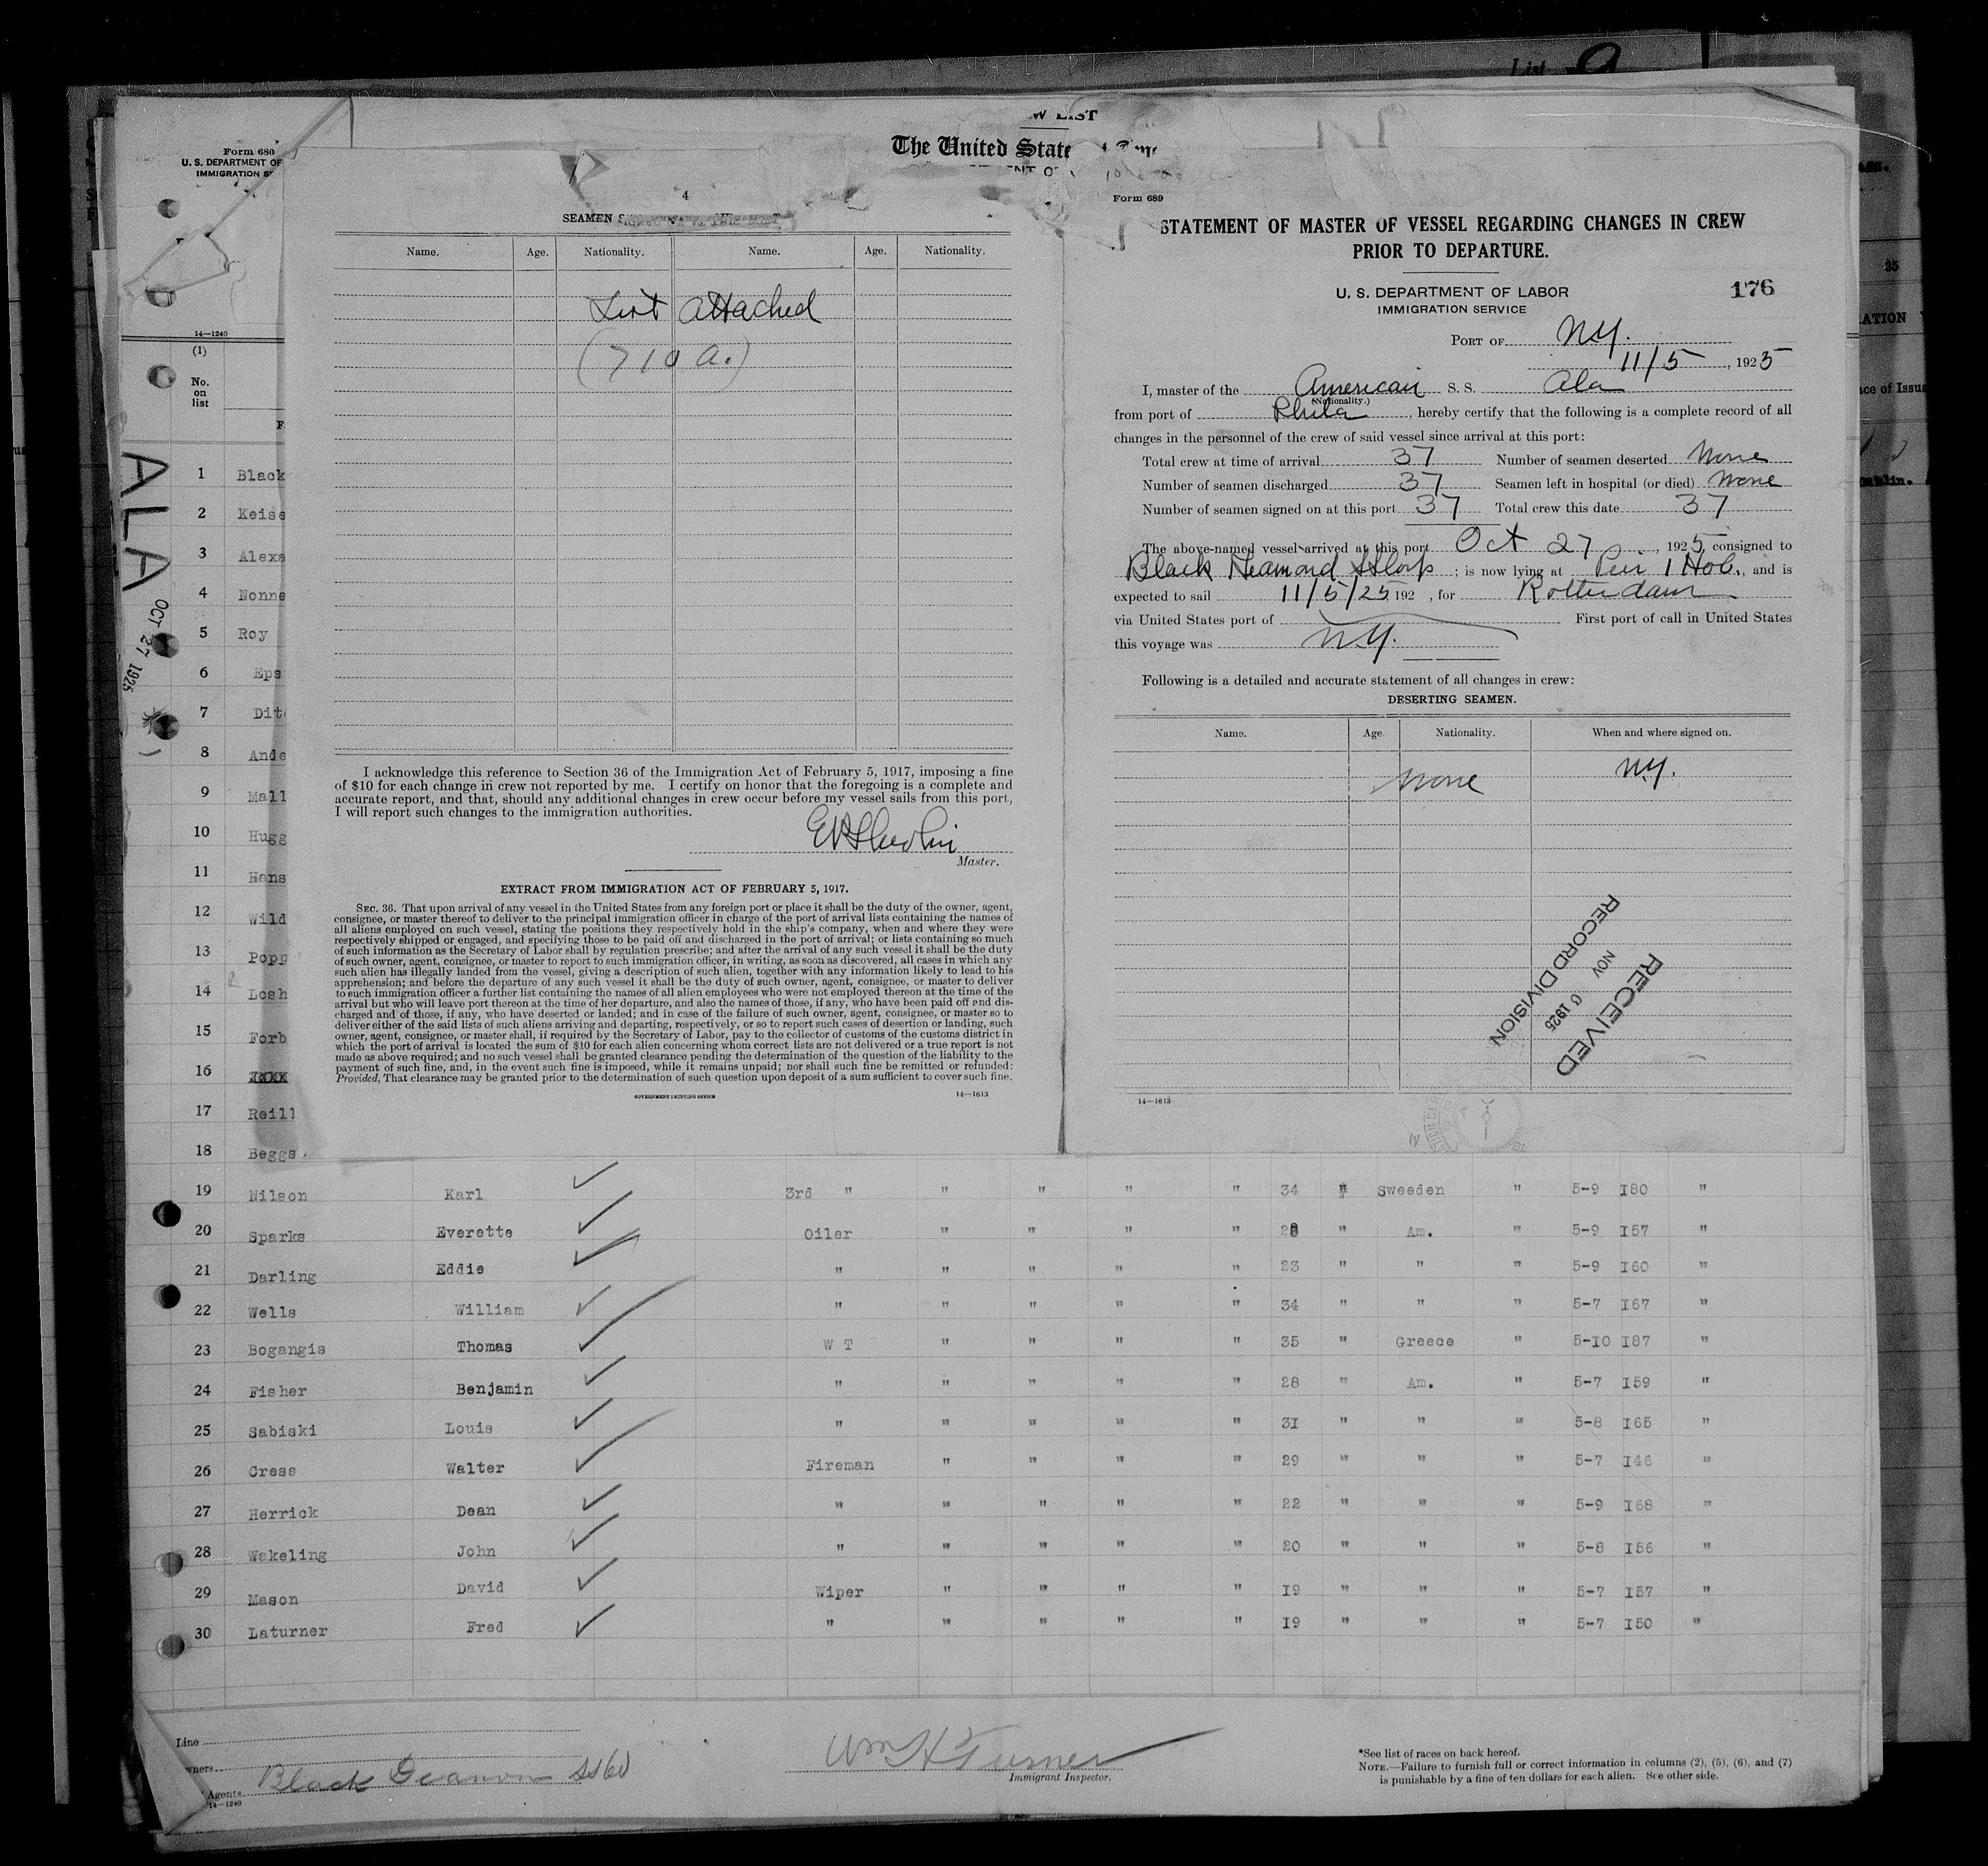 List 9
W LIST
The United State
Form 680
U. S. DEPARTMENT OF
IMMIGRATION SE
14—1240
(1)
No.
on
list
ALA
OCT 27 1925
1 Black
2 Keise
3 Alexa
4 Nonne
5 Roy
6 Eps
7 Dit
8 Ande
9 Mall
10 Hugg
11 Hans
12 Wild
13 Popp
14 Losh
15 Forb
16
17 Reill
18 Beggs
4
SEAMEN
Name. Age. Nationality. Name. Age. Nationality.
List attached
(710 a.)
I acknowledge this reference to Section 36 of the Immigration Act of February 5, 1917, imposing a fine
of $10 for each change in crew not reported by me. I certify on honor that the foregoing is a complete and
accurate report, and that, should any additional changes in crew occur before my vessel sails from this port,
I will report such changes to the immigration authorities.
Master.
EXTRACT FROM IMMIGRATION ACT OF FEBRUARY 5, 1917.
SEC. 36. That upon arrival of any vessel in the United States from any foreign port or place it shall be the duty of the owner, agent,
consignee, or master thereof to deliver to the principal immigration officer in charge of the port of arrival lists containing the names of
all aliens employed on such vessel, stating the positions they respectively hold in the ship's company, when and where they were
respectively shipped or engaged, and specifying those to be paid off and discharged in the port of arrival; or lists containing so much
of such information as the Secretary of Labor shall by regulation prescribe; and after the arrival of any such vessel it shall be the duty
of such owner, agent, consignee, or master to report to such immigration officer, in writing, as soon as discovered, all cases in which any
such alien has illegally landed from the vessel, giving a description of such alien, together with any information likely to lead to his
apprehension; and before the departure of any such vessel it shall be the duty of such owner, agent, consignee, or master to deliver
to such immigration officer a further list containing the names of all alien employees who were not employed thereon at the time of the
arrival but who will leave port thereon at the time of her departure, and also the names of those, if any, who have been paid off and dis-
charged and of those, if any, who have deserted or landed; and in case of the failure of such owner, agent, consignee, or master so to
deliver either of the said lists of such aliens arriving and departing, respectively, or so to report such cases of desertion or landing, such
owner, agent, consignee, or master shall, if required by the Secretary of Labor, pay to the collector of customs of the customs district in
which the port of arrival is located the sum of $10 for each alien concerning whom correct lists are not delivered or a true report is not
made as above required; and no such vessel shall be granted clearance pending the determination of the question of the liability to the
payment of such fine, and, in the event such fine is imposed, while it remains unpaid; nor shall such fine be remitted or refunded:
Provided, That clearance may be granted prior to the determination of such question upon deposit of a sum sufficient to cover such fine.
GOVERNMENT PRINTING OFFICE 14—1613
Form 689
STATEMENT OF MASTER OF VESSEL REGARDING CHANGES IN CREW
PRIOR TO DEPARTURE.
U. S. DEPARTMENT OF LABOR
IMMIGRATION SERVICE
176
PORT OF N.Y.
11/5, 1925
I, master of the American S. S. Ala
(Nationality.)
from port of Phila, hereby certify that the following is a complete record of all
changes in the personnel of the crew of said vessel since arrival at this port:
Total crew at time of arrival 37 Number of seamen deserted None
Number of seamen discharged 37 Seamen left in hospital (or died) None
Number of seamen signed on at this port 37 Total crew this date 37
The above-named vessel arrived at this port Oct 27, 1925, consigned to
Black Diamond SS Corp; is now lying at Peir 1 Hob., and is
expected to sail 11/5/25 192 , for Rotterdam
via United States port of First port of call in United States
this voyage was N.Y.
Following is a detailed and accurate statement of all changes in crew:
DESERTING SEAMEN.
Name. Age. Nationality. When and where signed on.
None N.Y.
RECEIVED
NOV 6 1925
RECORD DIVISION
14—1613
19 Nilson Karl 3rd " " " " " 34 " Sweeden " 5-9 I80 "
20 Sparks Everette Oiler " " " " 28 " Am. " 5-9 I57 "
21 Darling Eddie " " " " " 23 " " " 5-9 I60 "
22 Wells William " " " " " 34 " " " 5-7 I67 "
23 Bogangis Thomas W T " " " " 35 " Greece " 5-10 I87 "
24 Fisher Benjamin " " " " " 28 " Am. " 5-7 I59 "
25 Sabiski Louis " " " " " 3I " " " 5-8 I65 "
26 Cress Walter Fireman " " " " 29 " " " 5-7 I46 "
27 Herrick Dean " " " " " 22 " " " 5-9 I68 "
28 Wakeling John " " " " " 20 " " " 5-8 I56 "
29 Mason David Wiper " " " " I9 " " " 5-7 I57 "
30 Laturner Fred " " " " " I9 " " " 5-7 I50 "
Line
wners
Agents Black
14—1240
Wm H Turner
Immigrant Inspector.
*See list of races on back hereof.
NOTE.—Failure to furnish full or correct information in columns (2), (5), (6), and (7)
is punishable by a fine of ten dollars for each alien. See other side.